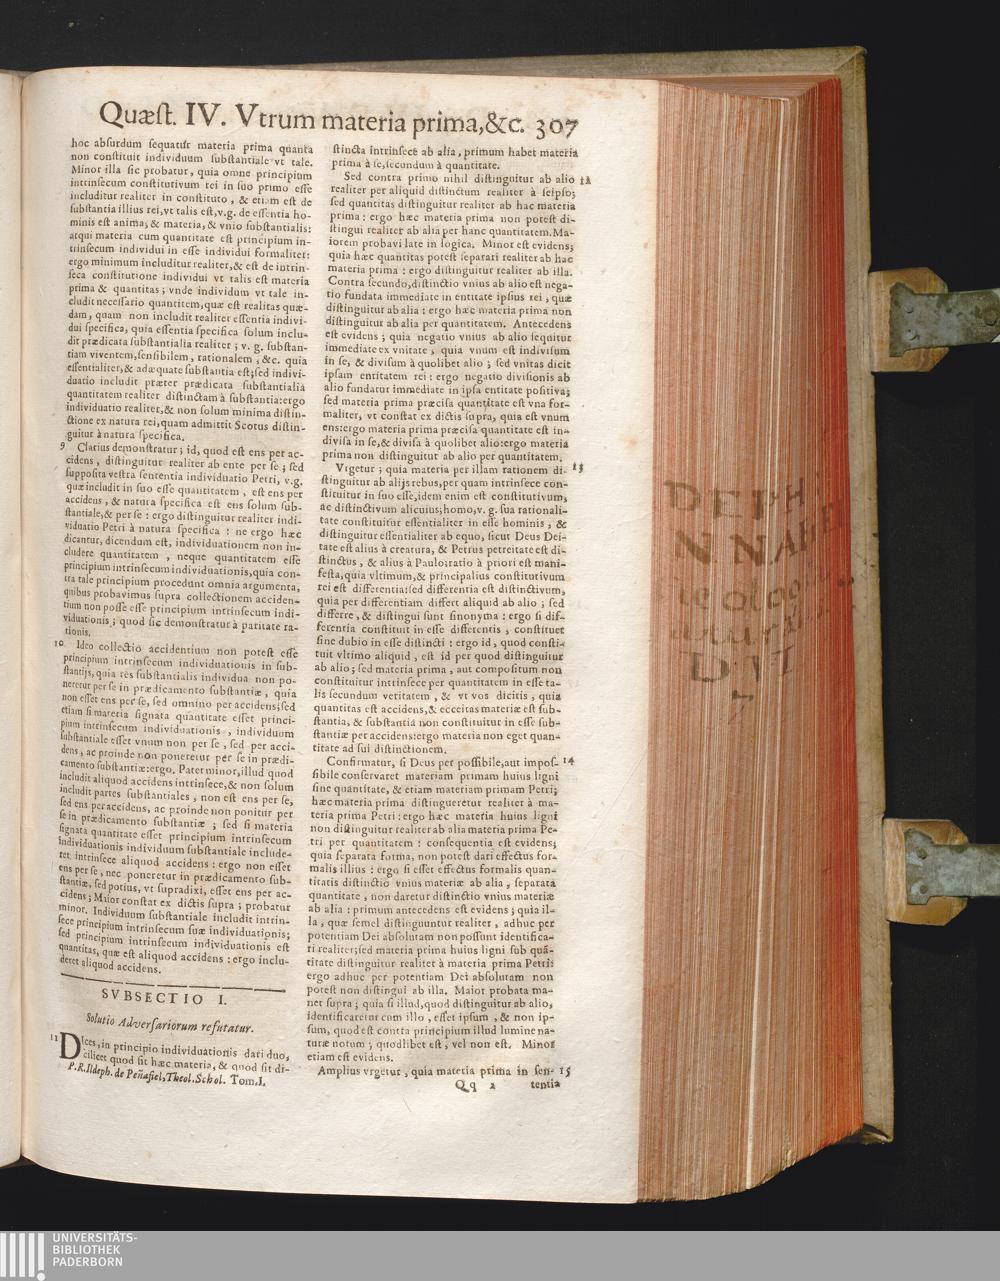 Quæst. IV. Vtrum materia prima,&c. 307
hoc absurdum sequatur materia prima quanta
non constituit individuum substantiale vt tale.
Minor illa sic probatur, quia omne principium
intrinsecum constitutivum rei in suo primo esse
includitur realiter in constituto, & etiam est de
substantia illius rei,vt talis est,v.g. de essentia ho-
minis est anima, & materia, & vnio substantialis:
atqui materia cum quantitate est principium in-
trinsecum individui in esse individui formaliter:
ergo minimum includitur realiter,& est de intrin-
seca constitutione individui vt talis est materia
prima & quantitas; vnde individuum vt tale in-
cludit necessario quantitem,quæ est realitas quæ-
dam, quam non includit realiter essentia indivi-
dui specifica, quia essentia specifica solum inclu-
dit prædicata substantialia realiter; v. g. substan-
tiam viventem,sensibilem, rationalem, &c. quia
essentialiter,& adæquate substantia est;sed indivi-
duatio includit præter prædicata substantialia
quantitatem realiter distinctam à substantia:ergo
individuatio realiter,& non solum minima distin-
ctione ex natura rei,quam admittit Scotus distin-
guitur à natura specifica.
9 Clarius demonstratur; id, quod est ens per ac-
cidens, distinguitur realiter ab ente per se; sed
supposita vestra sententia individuatio Petri, v.g.
quæ includit in suo esse quantitatem, est ens per
accidens, & natura specifica est ens solum sub-
stantiale,& per se: ergo distinguitur realiter indi-
viduatio Petri à natura specifica: ne ergo hæc
dicantur, dicendum est, individuationem non in-
cludere quantitatem, neque quantitatem esse
principium intrinsecum individuationis,quia con-
tra tale principium procedunt omnia argumenta,
quibus probavimus supra collectionem acciden-
tium non posse esse principium intrinsecum indi-
viduationis; quod sic demonstratur à paritate ra-
tionis.
10 Ideo collectio accidentium non potest esse
principium intrinsecum individuationis in sub-
stantijs, quia res substantialis individua non po-
neretur per se in prædicamento substantiæ, quia
non esset ens per se, sed omnino per accidens;sed
etiam si materia signata quantitate esset princi-
pium intrinsecum individuationis, individuum
substantiale esset vnum non per se, sed per acci-
dens, ac proinde non poneretur per se in prædi-
camento substantiæ:ergo. Patet minor,illud quod
includit aliquod accidens intrinsece,& non solum
includit partes substantiales, non est ens per se,
sed ens per accidens, ac proinde non ponitur per
se in prædicamento substantiæ; sed si materia
signata quantitate esset principium intrinsecum
individuationis individuum substantiale include-
ret intrinsece aliquod accidens: ergo non esset
ens per se, nec poneretur in prædicamento sub-
stantiæ, sed potius, vt supra dixi, esset ens per ac-
cidens; Maior constat ex dictis supra; probatur
minor. Individuum substantiale includit intrin-
sece principium intrinsecum suæ individuationis;
sed principium intrinsecum individuationis est
quantitas, quæ est aliquod accidens: ergo inclu-
deret aliquod accidens.
SVBSECTIO I.
Solutio Adversariorum refutatur.
11 Dices, in principio individuationis dari duo,
scilicet quod sit hæc materia, & quod sit di-
P.R.Ildeph. de Peñafiel,Theol.Schol. Tom.I.
stincta intrinsece ab alia, primum habet materia
prima à se,secundum à quantitate.
Sed contra primo nihil distinguitur ab alio 12
realiter per aliquid distinctum realiter à seipso;
sed quantitas distinguitur realiter ab hac materia
prima: ergo hæc materia prima non potest di-
stingui realiter ab alia per hanc quantitatem.Ma-
iorem probavi late in logica. Minor est evidens;
quia hæc quantitas potest separari realiter ab hac
materia prima: ergo distinguitur realiter ab illa.
Contra secundo,distinctio vnius ab alio est nega-
tio fundata immediate in entitate ipsius rei, quæ
distinguitur ab alia: ergo hæc materia prima non
distinguitur ab alia per quantitatem. Antecedens
est evidens; quia negatio vnius ab alio sequitur
immediate ex vnitate, quia vnum est indivisum
in se, & divisum à quolibet alio; sed vnitas dicit
ipsam entitatem rei: ergo negatio divisionis ab
alio fundatur immediate in ipsa entitate positiva;
sed materia prima præcisa quantitate est vna for-
maliter, vt constat ex dictis supra, quia est vnum
ens:ergo materia prima præcisa quantitate est in-
divisa in se,& divisa à quolibet alio:ergo materia
prima non distinguitur ab alio per quantitatem.
Vrgetur; quia materia per illam rationem di- 13
stinguitur ab alijs rebus,per quam intrinsece con-
stituitur in suo esse,idem enim est constitutivum,
ac distinctivum alicuius;homo,v. g. sua rationali-
tate constituitur essentialiter in esse hominis, &
distinguitur essentialiter ab equo, sicut Deus Dei-
tate est alius à creatura, & Petrus petreitate est di-
stinctus, & alius à Paulo;ratio à priori est mani-
festa,quia vltimum,& principalius constitutivum
rei est differentia:sed differentia est distinctivum,
quia per differentiam differt aliquid ab alio; sed
differre, & distingui sunt sinonyma: ergo si dif-
ferentia constituit in esse differentis, constituet
sine dubio in esse distincti: ergo id, quod consti-
tuit vltimo aliquid, est id per quod distinguitur
ab alio; sed materia prima, aut compositum non
constituitur intrinsece per quantitatem in esse ta-
lis secundum veritatem, & vt vos dicitis, quia
quantitas est accidens,& ecceitas materiæ est sub-
stantia, & substantia non constituitur in esse sub-
stantiæ per accidens:ergo materia non eget quan-
titate ad sui distinctionem.
Confirmatur, si Deus per possibile,aut impos- 14
sibile conservaret materiam primam huius ligni
sine quantitate, & etiam materiam primam Petri;
hæc materia prima distingueretur realiter à ma-
teria prima Petri: ergo hæc materia huius ligni
non distinguitur realiter ab alia materia prima Pe-
tri per quantitatem: consequentia est evidens;
quia separata forma, non potest dari effectus for-
malis illius: ergo si esset effectus formalis quan-
titatis distinctio vnius materiæ ab alia, separata
quantitate, non daretur distinctio vnius materiæ
ab alia: primum antecedens est evidens; quia il-
la, quæ semel distinguuntur realiter, adhuc per
potentiam Dei absolutam non possunt identifica-
ri realiter;sed materia prima huius ligni sub quã-
titate distinguitur realiter à materia prima Petri:
ergo adhuc per potentiam Dei absolutam non
potest non distingui ab illa. Maior probata ma-
net supra; quia si illud,quod distinguitur ab alio,
identificaretur cum illo, esset ipsum, & non ip-
sum, quod est contra principium illud lumine na-
turæ notum; quodlibet est, vel non est. Minor
etiam est evidens.
Amplius vrgetur, quia materia prima in sen- 15
Qq 2 tentia
UNIVERSITÄTS-
BIBLIOTHEK
PADERBORN